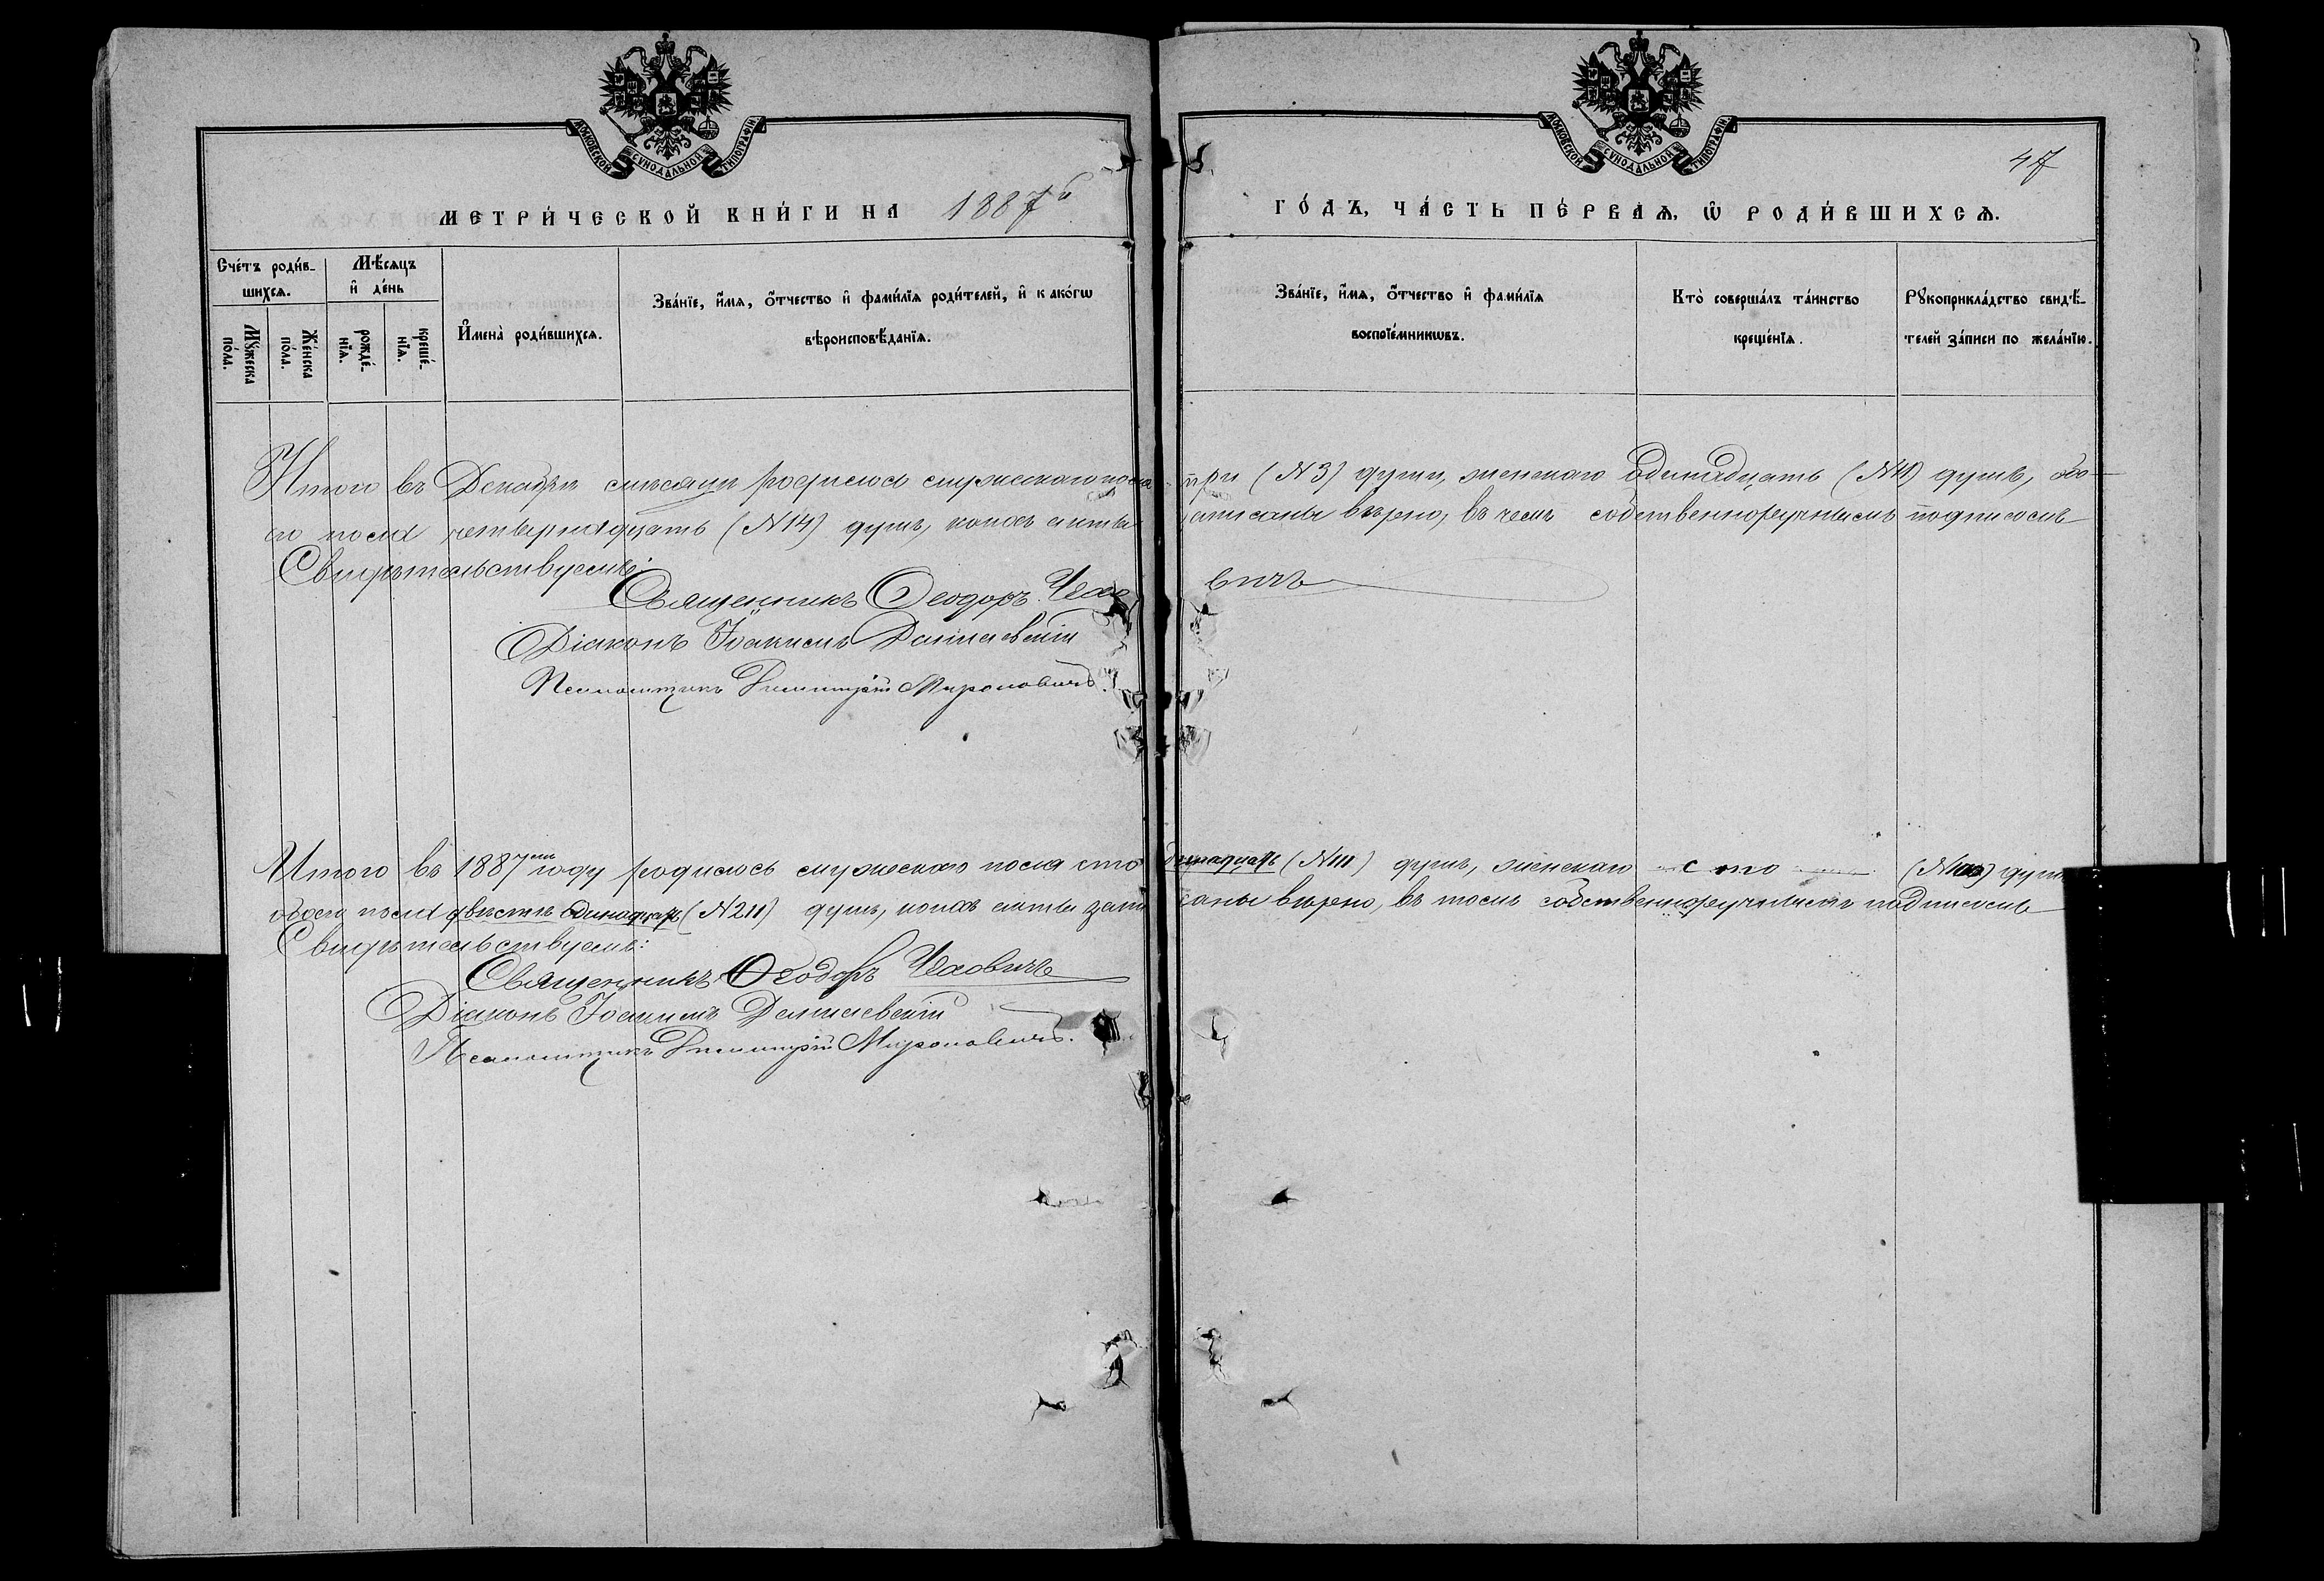 МОСКОВСКОЙ СѴНОДАЛЬНОЙ ТИПОГРАФІИ
МЕТРИ́ЧЕСКОЙ КНИ́ГИ НА 1887й
Сче́тъ роди́в-
шихсѧ.
Мѣ́сѧцъ
и҆ де́нь
Мꙋ́жеска
по́ла.
Же́нска
по́ла.
рожде́-
нїѧ.
креще́-
нїѧ.
И҆мена̀ роди́вшихсѧ.
Зва́нїе, и҆́мѧ, ѻ҆́тчество и҆ фами́лїѧ роди́телей, и҆ како́гѡ
вѣроисповѣ́данїѧ.
МОСКОВСКОЙ СѴНОДАЛЬНОЙ ТИПОГРАФІИ
47
ГО́ДЪ, ЧА́СТЬ ПЕ́РВАѦ, Ѡ҆ РОДИ́ВШИХСѦ.
Зва́нїе, и҆́мѧ, ѻ҆́тчество и҆ фами́лїѧ
воспрїе́мникѡвъ.
Кто̀ соверша́лъ та́инство
креще́нїѧ.
Рꙋкоприкла́дство свидѣ́-
телей за́писи по жела́нїю.
Итого въ Декабрѣ мѣсяцѣ родилось мужескаго пола три (№ 3) души, женскаго одинадцать (№ 11) душъ, обо-
его пола четырнадцать (№ 14) душъ, коихъ акты записаны вѣрно, въ чемъ собственноручнымъ подписомъ
Свидѣтельствуемъ:
Священникъ Ѳеодоръ Чеховичъ
Діаконъ Іоакимъ Данилевскій
Псаломщикъ Димитрій Мироновичъ.
Итого въ 1887мъ году родилось мужескаго пола сто одинадцать (№ 111) душъ, женскаго сто (№ 100) душъ
обоего пола двѣсти одинадцать (№ 211) душъ, коихъ акты записаны вѣрно, въ томъ собственноручнымъ подписомъ
Свидѣтельствуемъ:
Священникъ Ѳеодоръ Чеховичъ
Діаконъ Іоакимъ Данилевскій
Псаломщикъ Димитрій Мироновичъ.